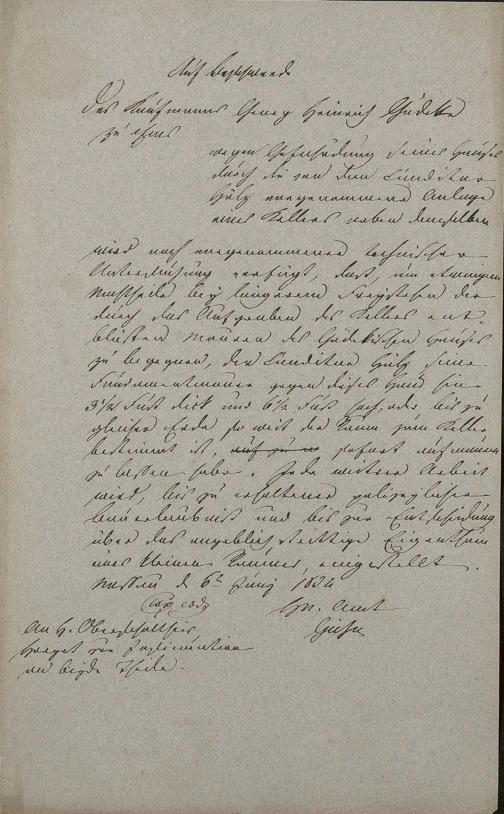 Auf Beschwerde
des Kaufmanns Georg Heinrich Gädeke
zu Ems
wegen Gefährdung seines Hauses
durch die von dem Conditor
Hölz vorgenommene Anlage
eines Kellers neben demselben
wird nach vorgenommener technischer
Untersuchung verfügt, daß, um etwaigem
Nachtheile bey längerem Freystehen der
durch das Ausgraben des Kellers ent-
blösten Mauern des Gädekischen Hauses
zu begegnen, der Conditor Hölz seine
Fundamentmauer gegen dieses Haus hin
3 1/2 Fuß dick und 6 1/2 Fuß hoch, oder bis zu
gleicher Erde so weit der Raum zum Keller
bestimmt ist, sofort aufmauern
zu lassen habe. Jede weitere Arbeit
wird, bis zu erhaltener polizeylicher
Bauerlaubniß und bis zur Entscheidung
über das angeblich streitige Eigenthum
eines kleinen Raumes, eingestellt.
Nassau d 6t Juny 1834
Hz. Amt
An H. Oberschultheis
zur Publication
an beyde Theile.